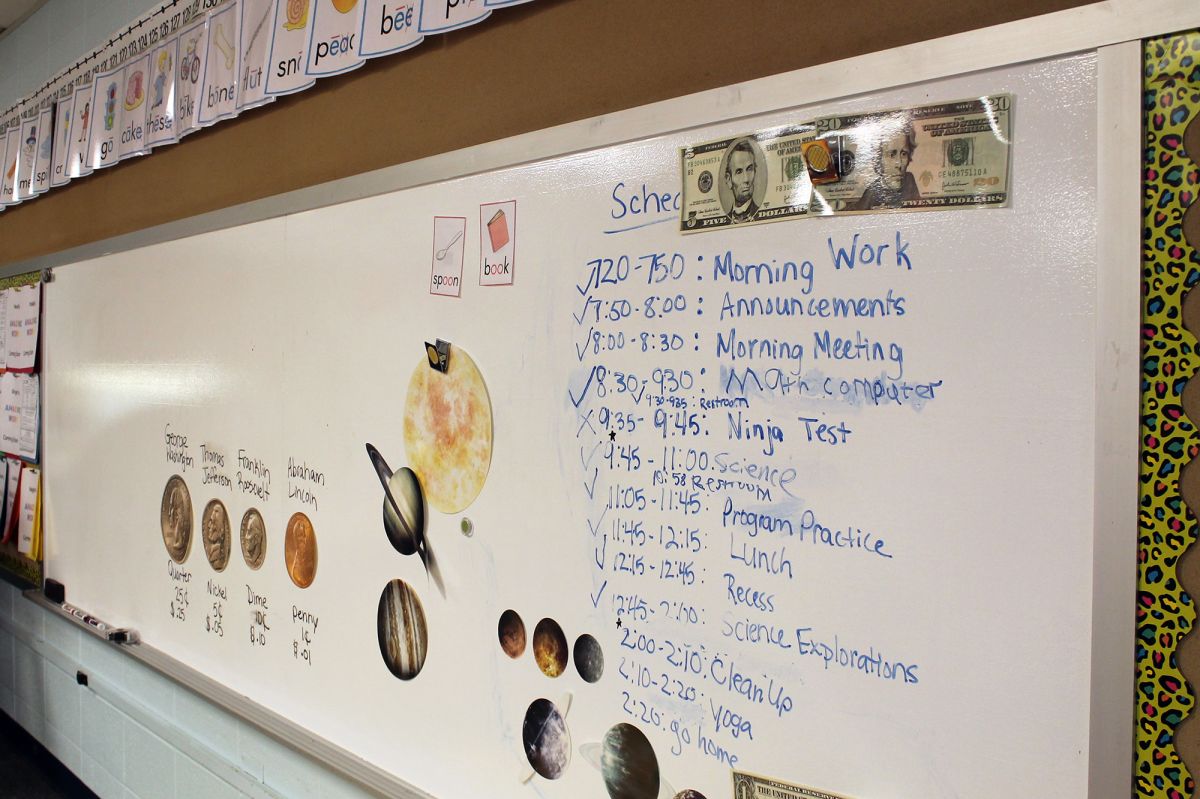 bōne
sn
pe
bē
go
cōke
thēse
bike
spoon
book
Sched
FIVE DOLLARS
20
THE UNITED STATES OF AMERICA
GE 48875110 A
TWENTY DOLLARS
720-750: Morning Work
7:50-8:00: Announcements
8:00-8:30: Morning Meeting
8:30-930: Math computer
9:30-935: Restroom
9:35-9:45: Ninja Test
9:45-11:00. Science
10:58 Restroom
11:05-11:45: Program Practice
11:45-12:15: Lunch
12:15-12:45: Recess
12:45-2:00: Science Explorations
2:00-2:10: Clean Up
2:10-2:20: yoga
2:20: go home
George Washington
Thomas Jefferson
Franklin Roosevelt
Abraham Lincoln
Quarter
25¢
$.25
Nickel
5¢
$.05
Dime
10¢
$.10
penny
1¢
$.01